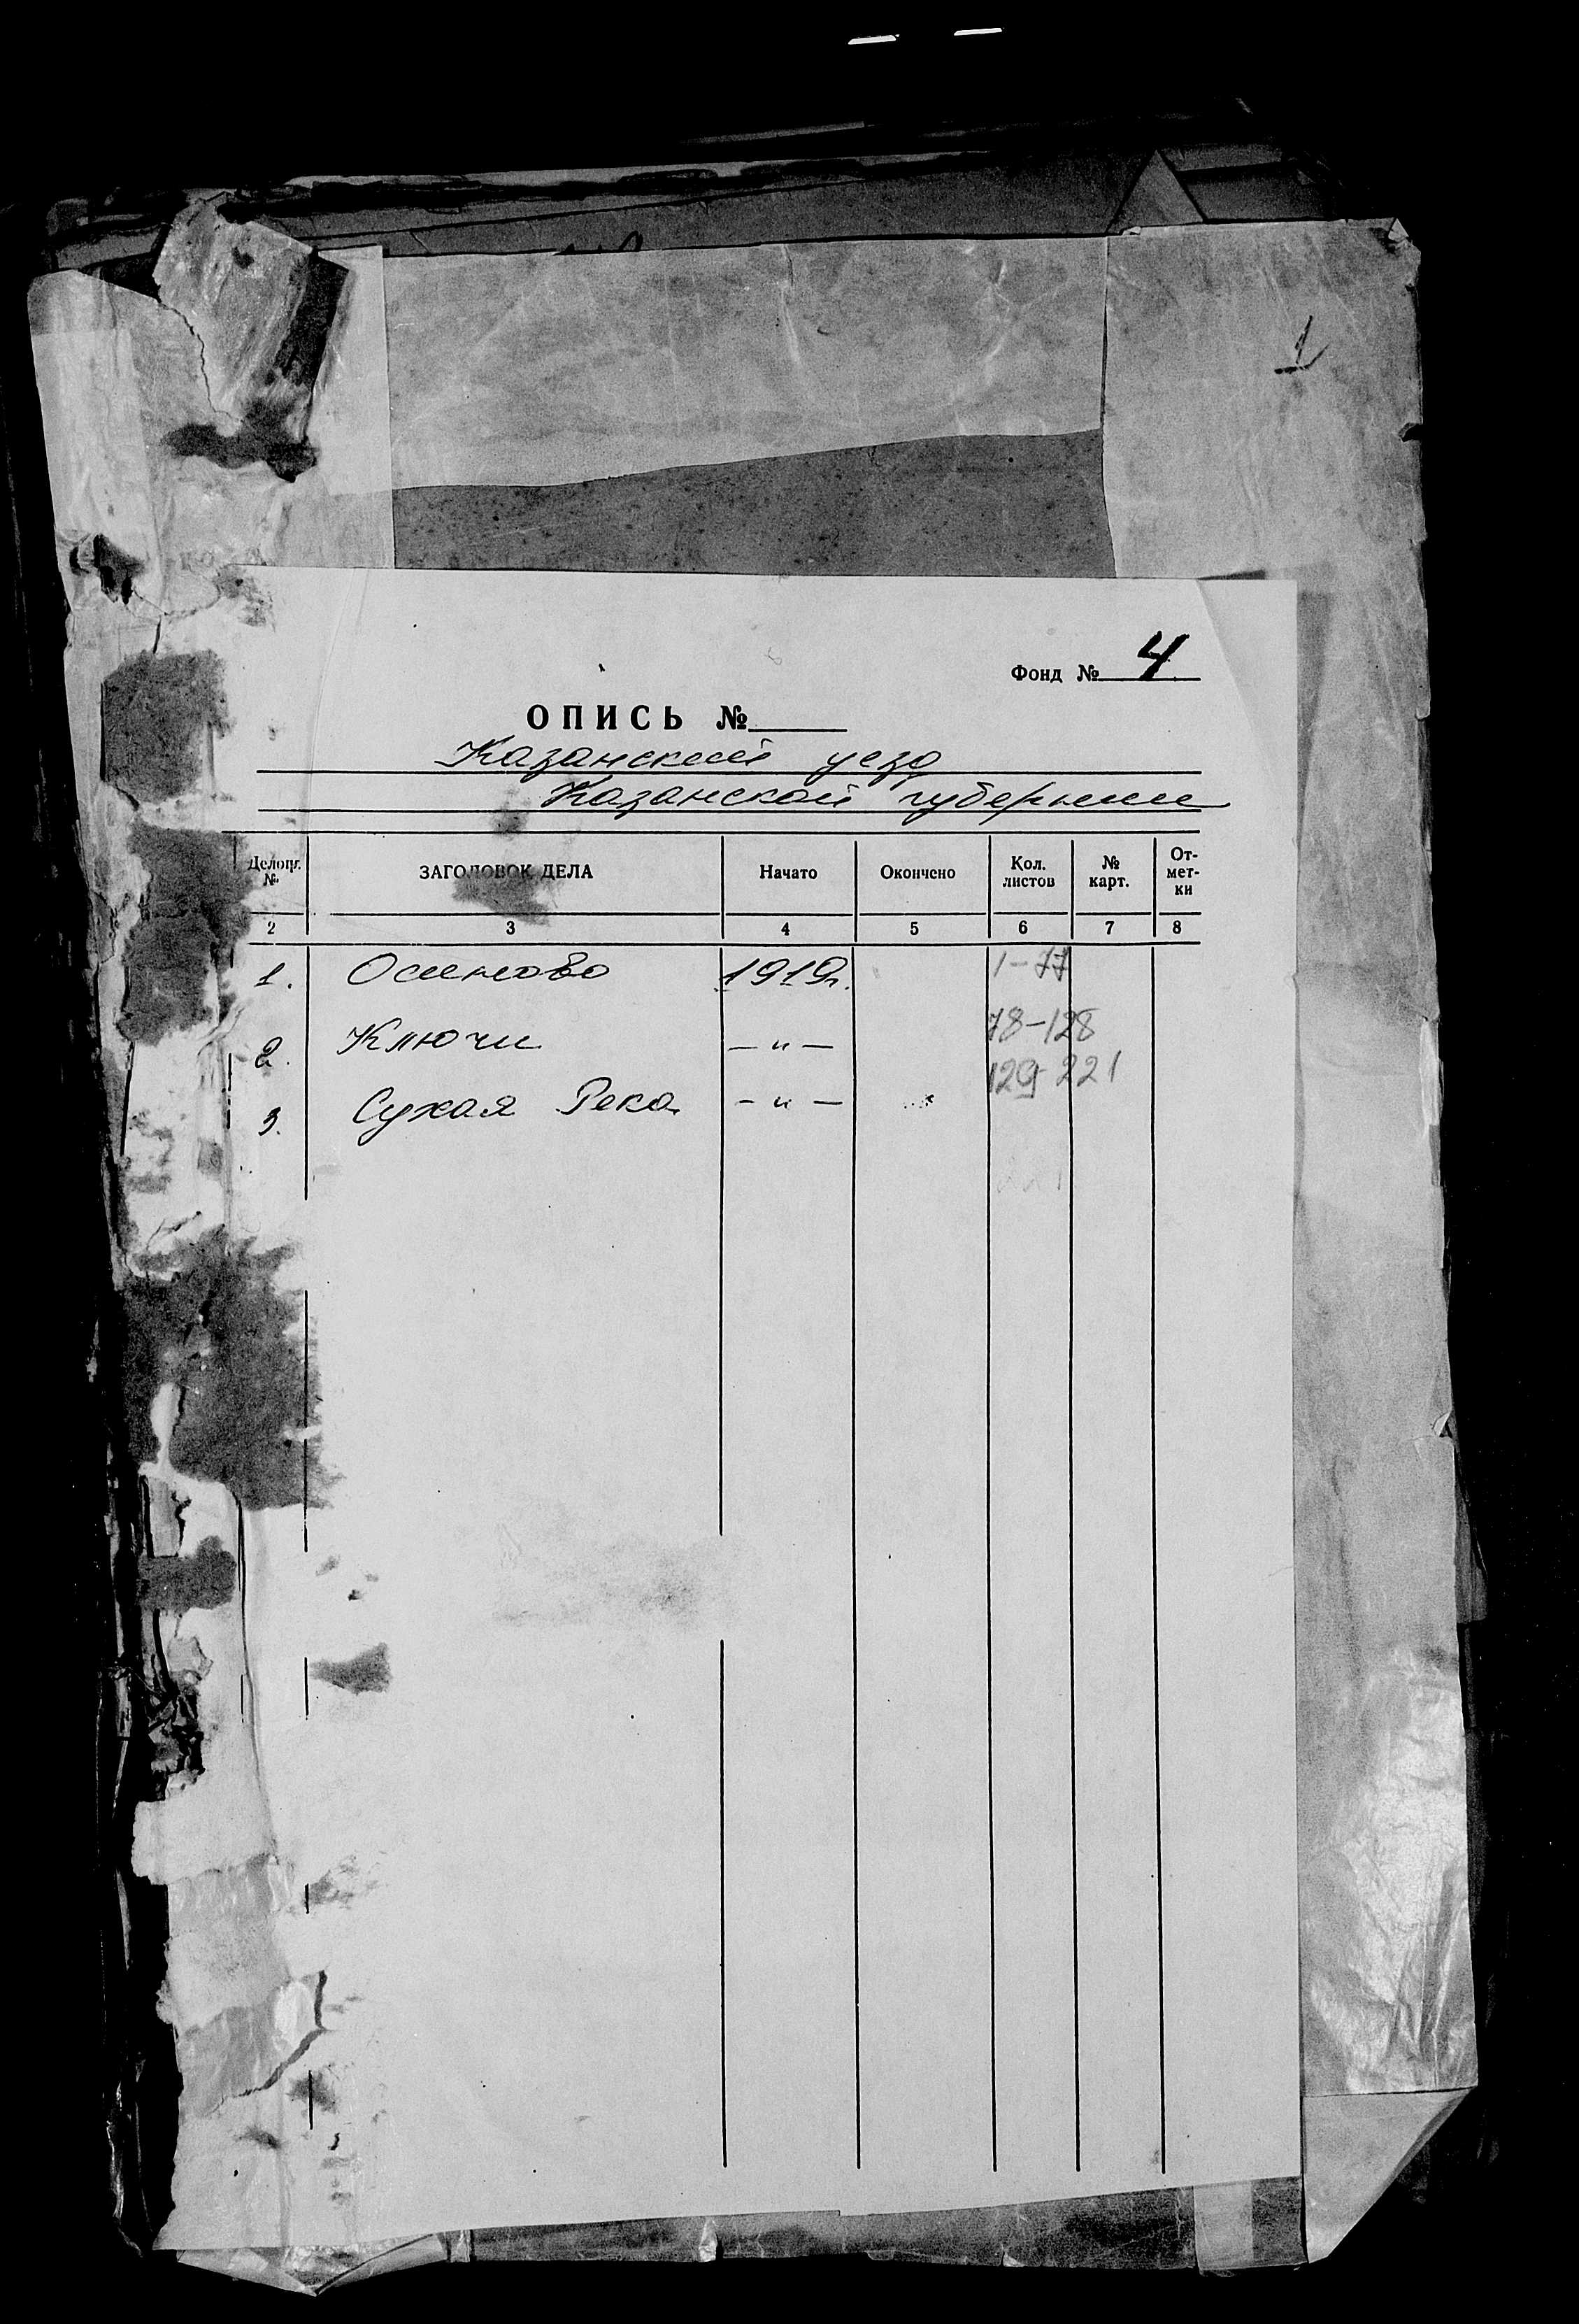 1
Фонд № 4
ОПИСЬ №
Казанский уезд
Казанской губернии
Делопр. № ЗАГОЛОВОК ДЕЛА Начато Окончено Кол. листов № карт. От-мет-ки
2 3 4 5 6 7 8
1. Осиново 1919г. 1-77
2. Ключи -"- 78-128
3. Сухая Река -"- 129-221